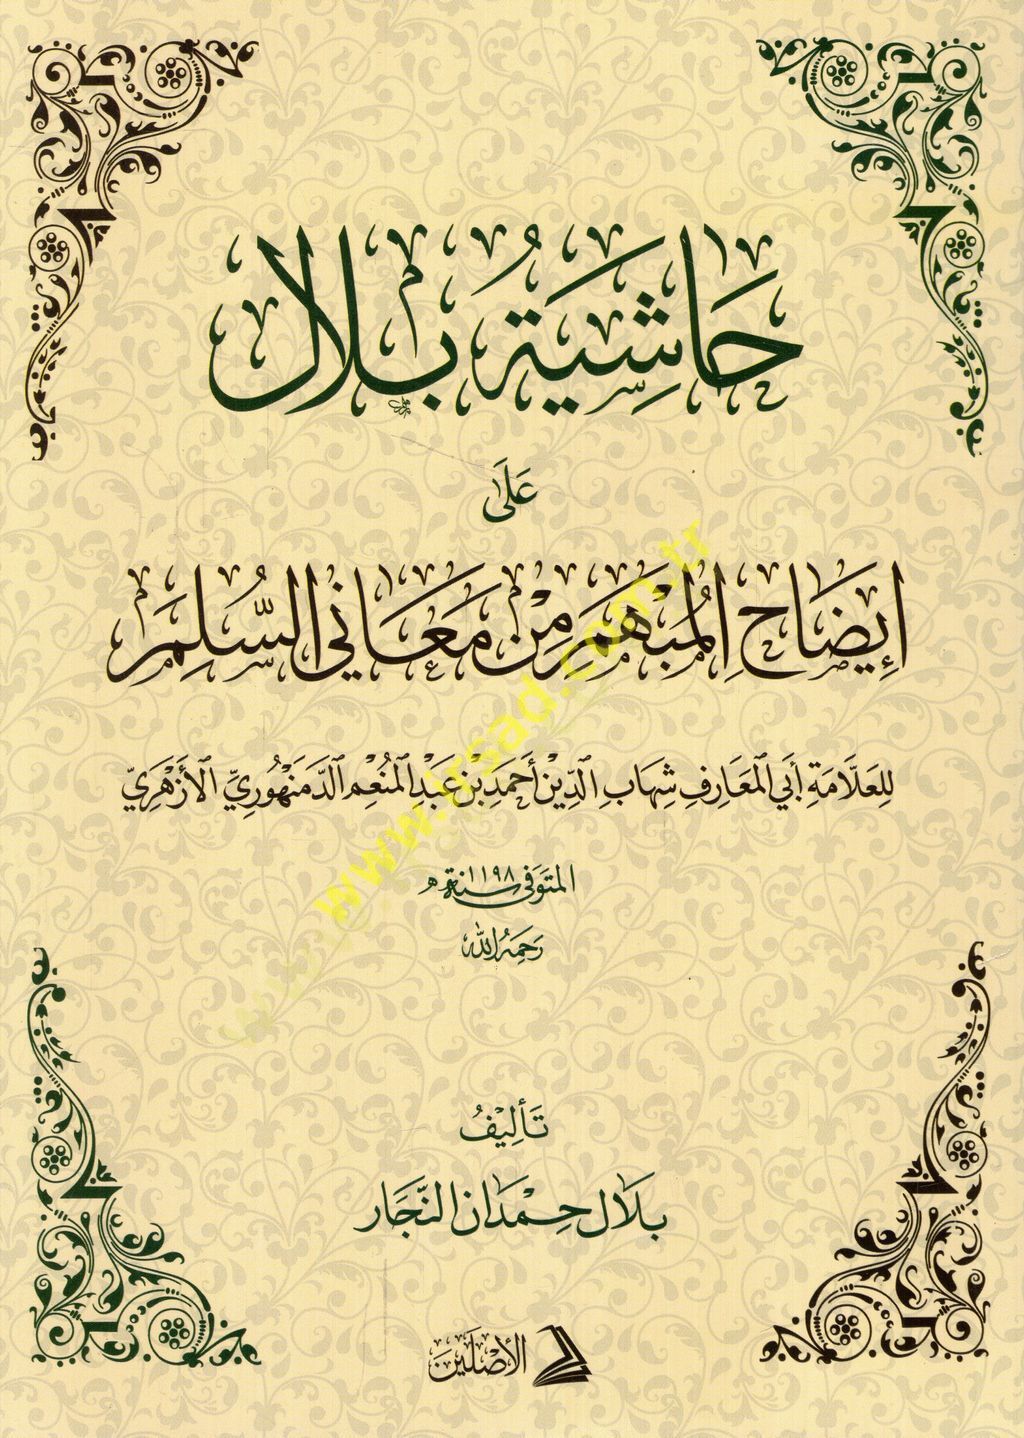 حَاشِيَةُ بِلَال
عَلَى
إِيضَاحِ المُبْهَمِ مِنْ مَعَانِي السُّلَّمِ
لِلعَلَّامَةِ أَبِي المَعَارِفِ شِهَابِ الدِّيْنِ أَحْمَدِ بْنِ عَبْدِ المُنْعِمِ الدَّمَنْهُورِيِّ الأَزْهَرِيِّ
المتوفى سنة ١١٩٨ هـ
رَحِمَهُ اللَّهُ
تَأْلِيْفُ
بِلَال حِمْدَان النَّجَّار
الأَصْلَيْن